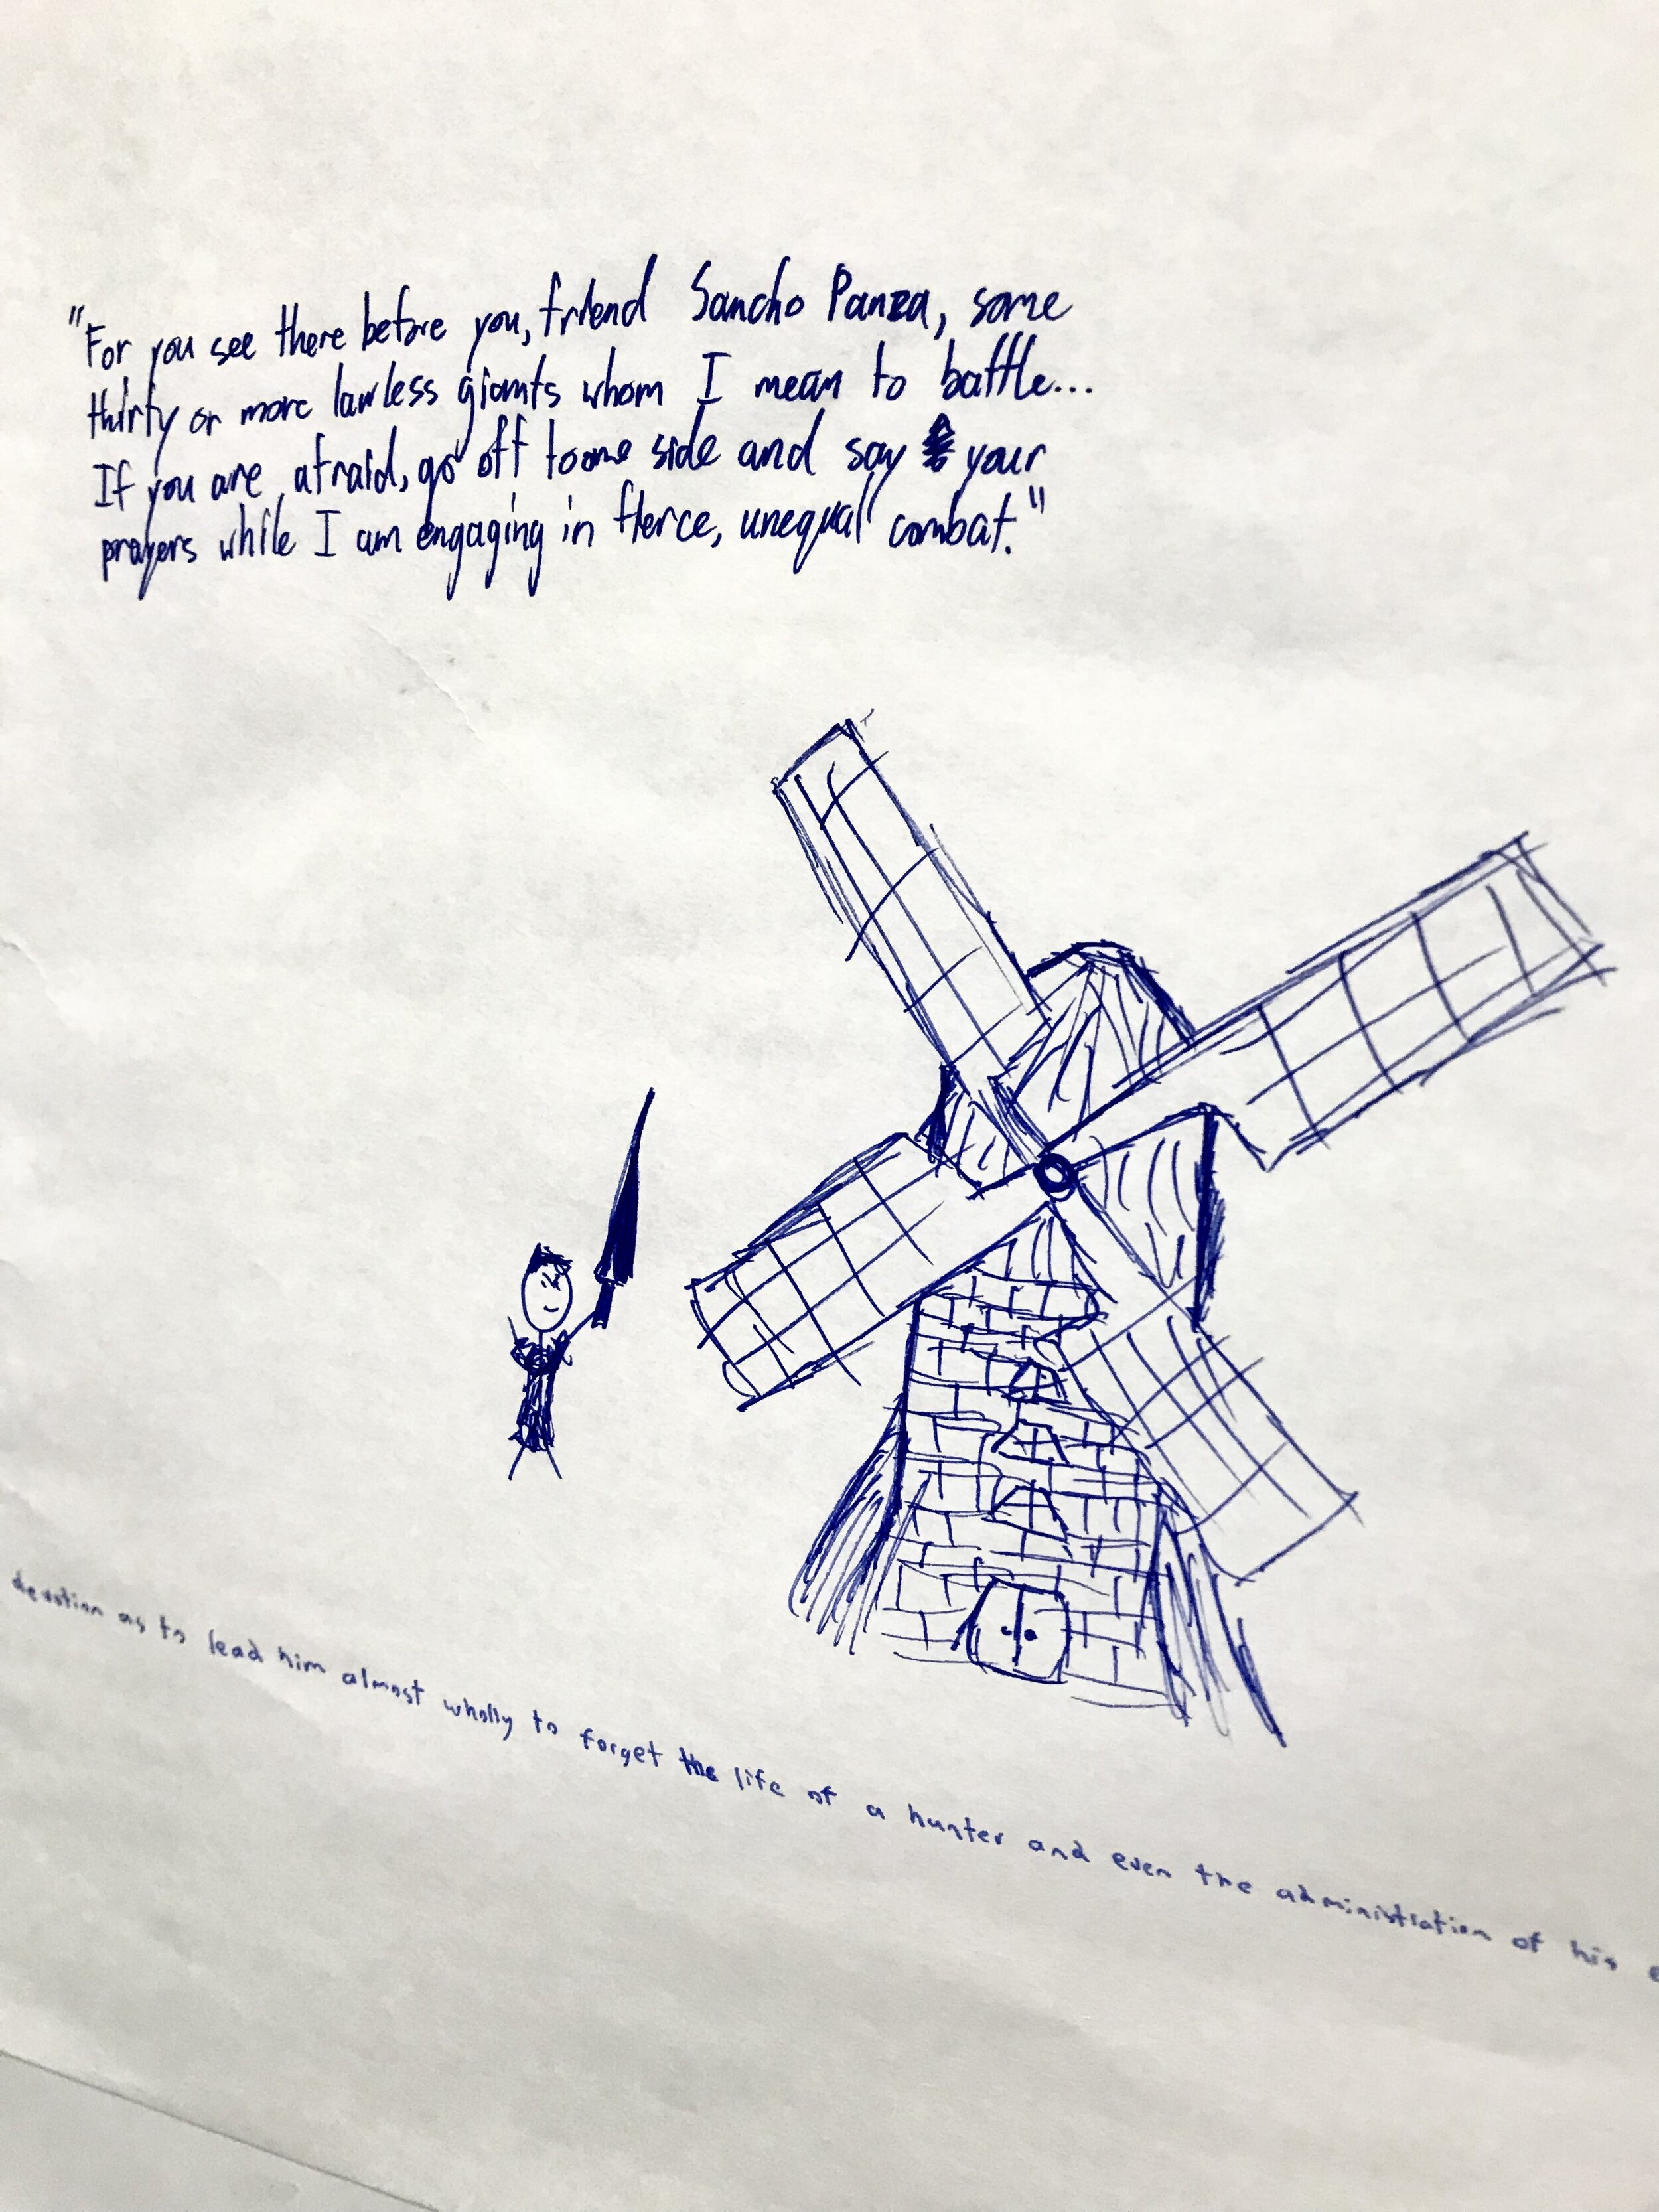 "For you see there before you, friend Sancho Panza, some
thirty or more lawless giants whom I mean to battle...
If you are afraid, go off to one side and say your
prayers while I am engaging in fierce, unequal combat."
devotion as to lead him almost wholly to forget the life of a hunter and even the administration of his